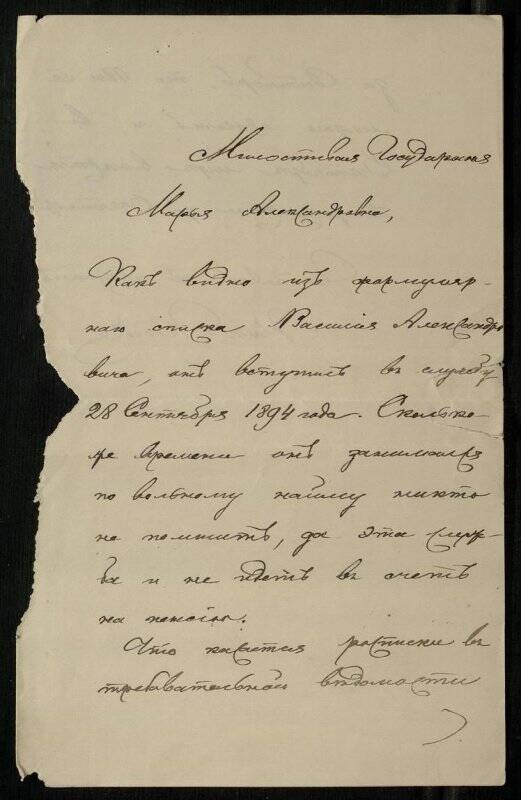 Милостивая Государыня
Марья Александровна,
Какъ видно изъ формуляр-
наго списка Василія Александро
вича, онъ вступилъ въ службу
28 Сентября 1894 года. Сколько
же времени онъ занимался
по вольному найму никто
не помнитъ, да эта служ-
ба и не идетъ въ счетъ
на пенсію.
Что касается росписки въ
требовательной вѣдомости